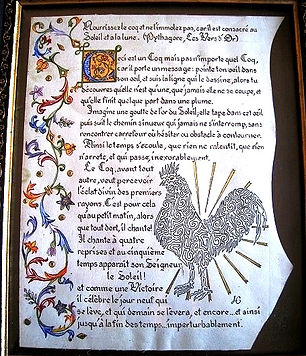 Nourrissez le coq et ne l'immolez pas, car il est consacré au
Soleil et à la lune. (Pythagore, Les Vers d'Or)
Ceci est un Coq mais pas n'importe quel Coq,
car il porte un message: pointe ton oeil dans
son oeil, et suis la ligne qui le dessine, alors tu
découvres qu'elle n'est qu'une, que jamais elle ne se coupe, et
qu'elle finit quelque part dans une plume.
Imagine une goutte d'or du Soleil, elle tape dans cet oeil
puis suit le chemin sinueux qui jamais ne s'interrompt, sans
rencontrer carrefour où hésiter ou obstacle à contourner.
Ainsi le temps s'écoule, que rien ne ralentit, que rien
n'arrête, et qui passe, inexorablement.
Le Coq, avant tout
autre, veut percevoir
l'éclat divin des premiers
rayons. C'est pour cela
qu'au petit matin, alors
que tout dort, il chante!
Il chante à quatre
reprises et au cinquième
temps apparait son Seigneur
le Soleil!
et comme une Victoire
il célèbre le jour neuf qui
se lève, et qui demain se lèvera, et encore... et ainsi
jusqu'à la fin des temps... imperturbablement.